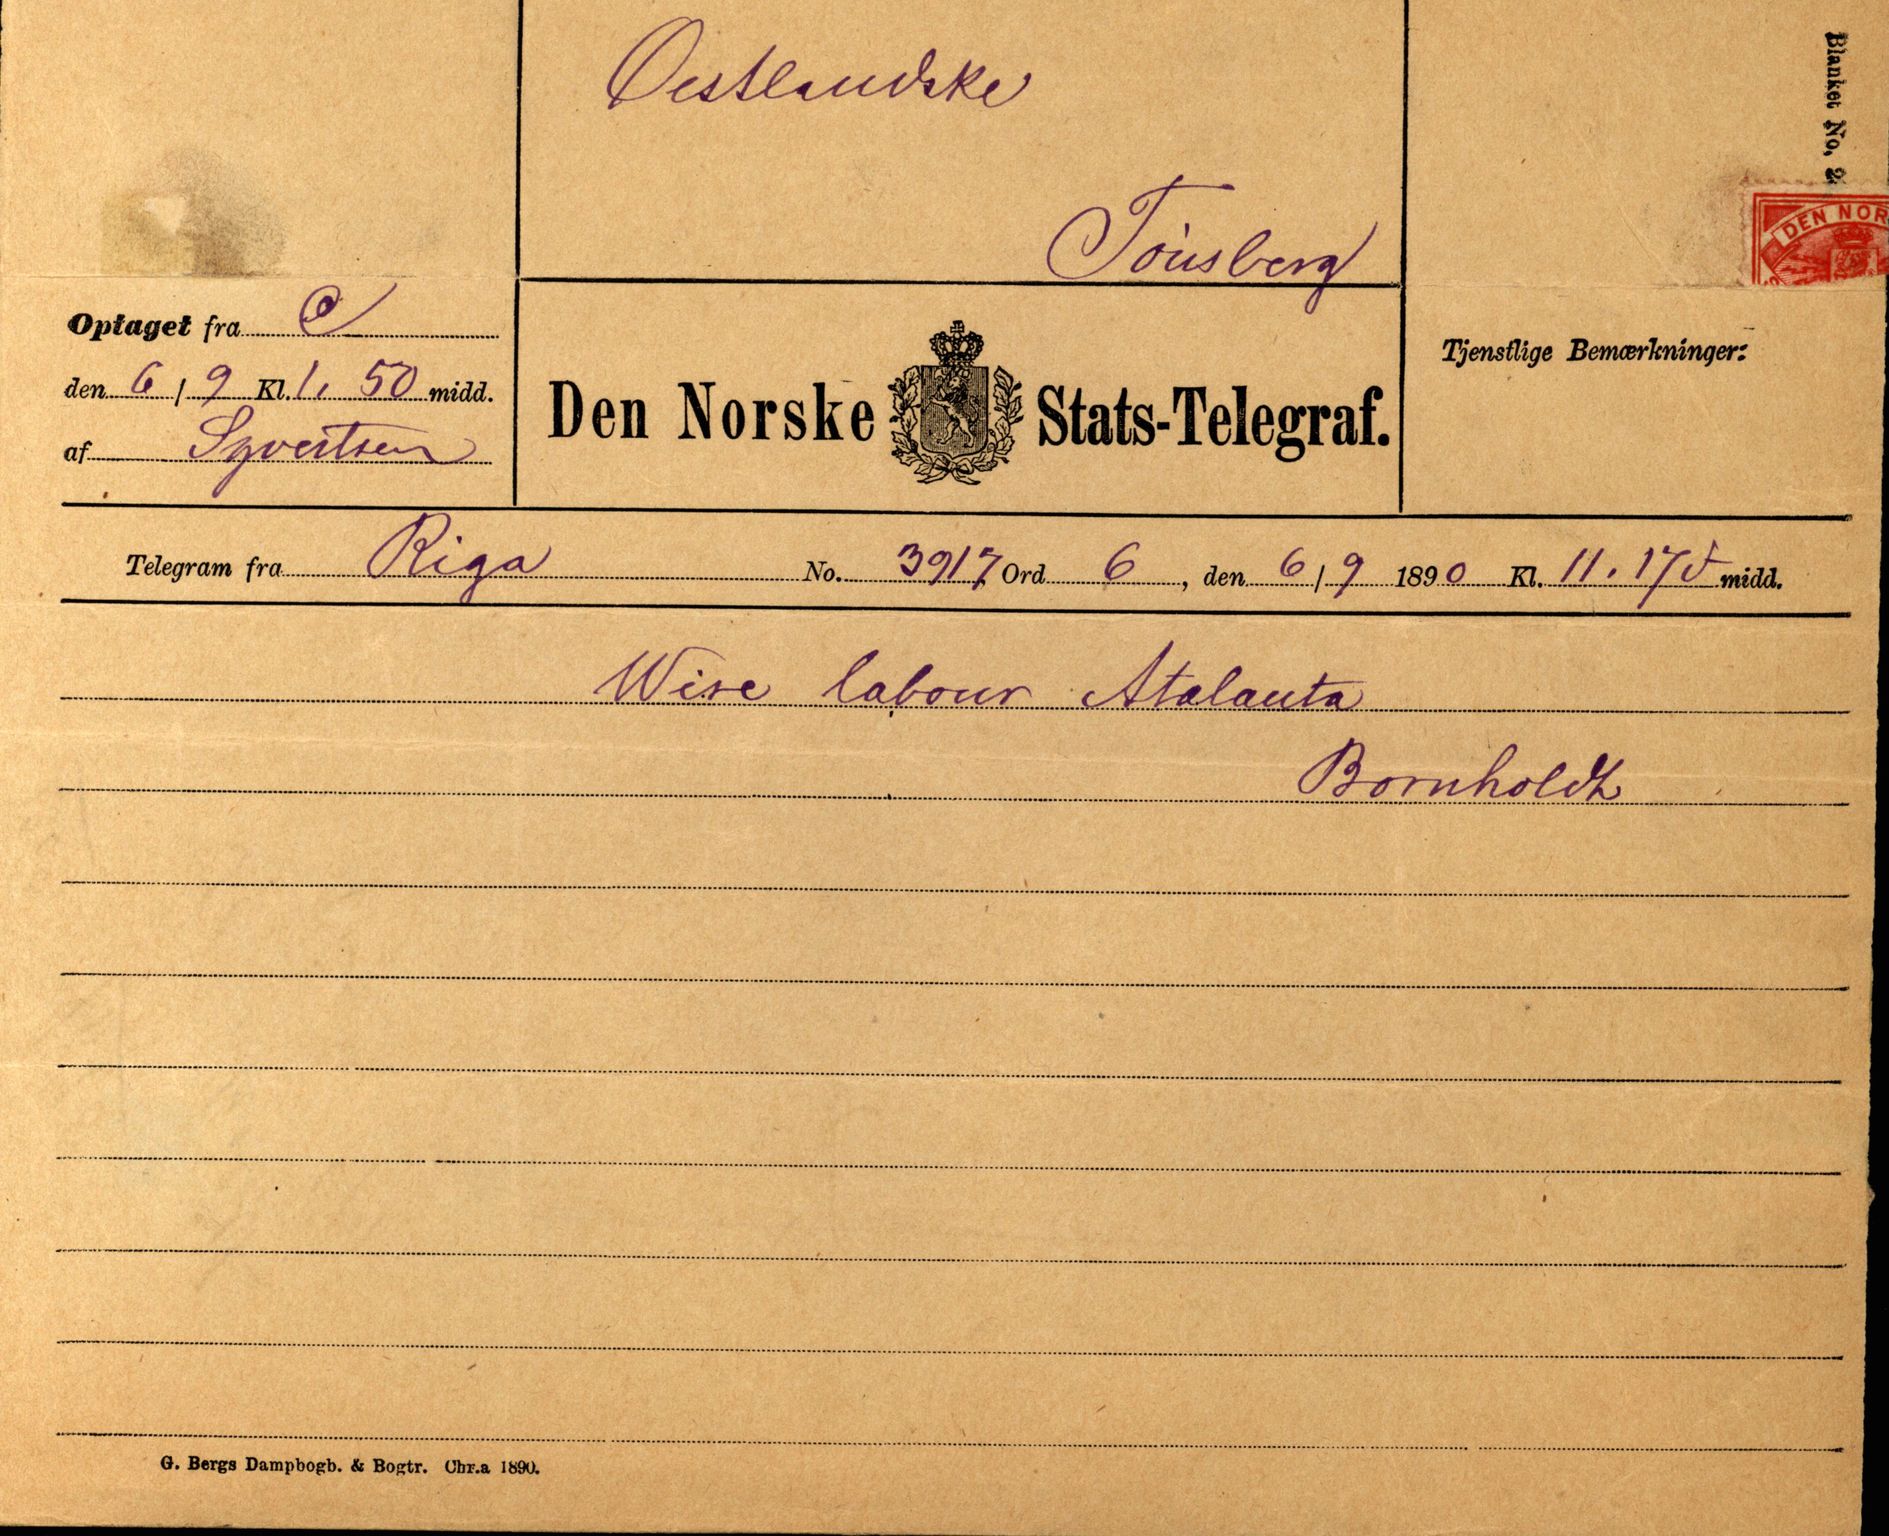 Oestlandske
Tönsberg
Blanket No. 2
DEN NOR
Optaget fra C
den 6 / 9 Kl. 1. 50 midd.
af Syvertsen
Den Norske Stats-Telegraf.
Tjenstlige Bemærkninger:
Telegram fra Riga No. 3917 Ord 6, den 6 / 9 1890 Kl. 11. 17 f midd.
Wire labour Atalanta
Bornholdt
G. Bergs Dampbogb. & Bogtr. Chr.a 1890.